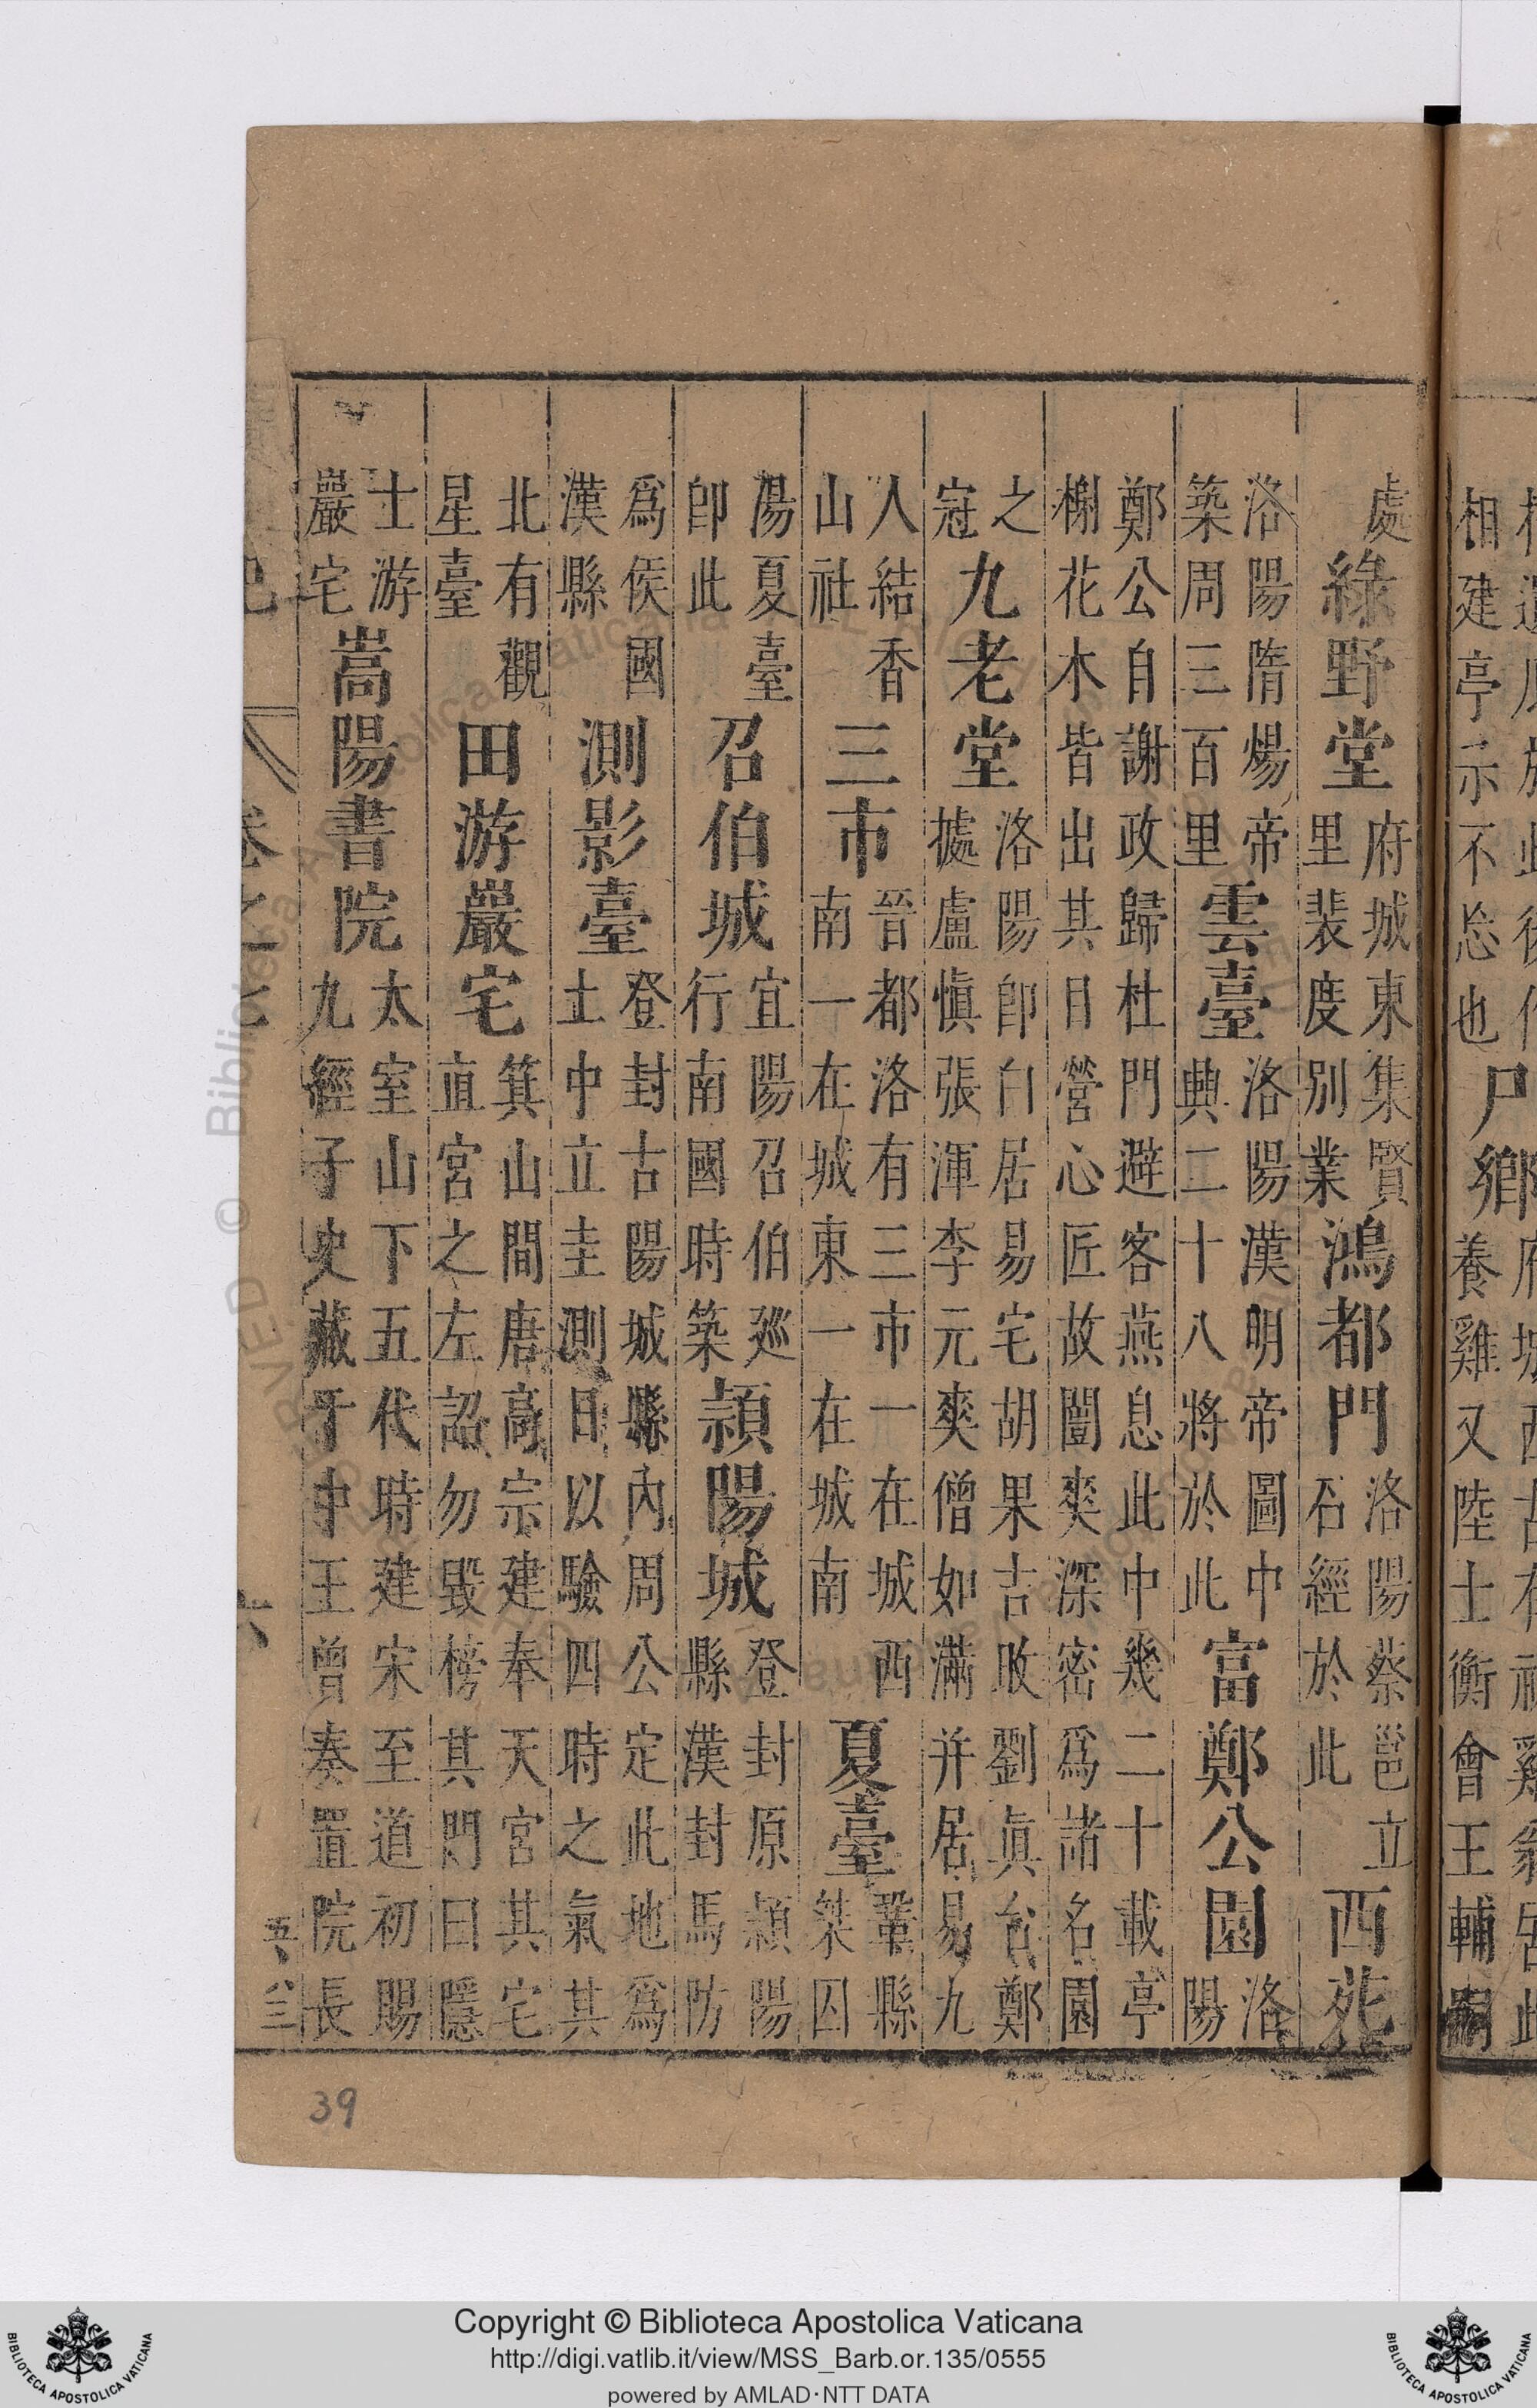 相建亭示不忘也尸鄉養雞又陸士衡會王輔嗣
處綠野堂府城東集賢里裴度別業鴻都門洛陽蔡邕立石經於此西苑
洛陽隋煬帝築周三百里雲臺洛陽漢明帝圖中興二十八將於此富鄭公園洛陽
鄭公自謝政歸杜門避客燕息此中幾二十載亭榭花木皆出其目營心匠故闓爽深密爲諸名園
之冠九老堂洛陽卽白居易宅胡果吉旼劉眞台鄭據盧愼張渾李元爽僧如滿并居易九
人結香山社三市晉都洛有三市一在城西南一在城東一在城南夏臺鞏縣桀囚
湯夏臺卽此召伯城宜陽召伯廵行南國時築潁陽城登封原潁陽縣漢封馬防
爲侯國漢縣測影臺登封古陽城縣內周公定此地爲土中立圭測日以驗四時之氣其
北有觀星臺田游巖宅箕山間唐高宗建奉天宮其宅直宮之左詔勿毀榜其門曰隱
士游巖宅嵩陽書院太室山下五代時建宋至道初賜九經子史藏于中王曾奏置院長
卷之七
六
39
Copyright © Biblioteca Apostolica Vaticana
http://digi.vatlib.it/view/MSS_Barb.or.135/0555
powered by AMLAD·NTT DATA